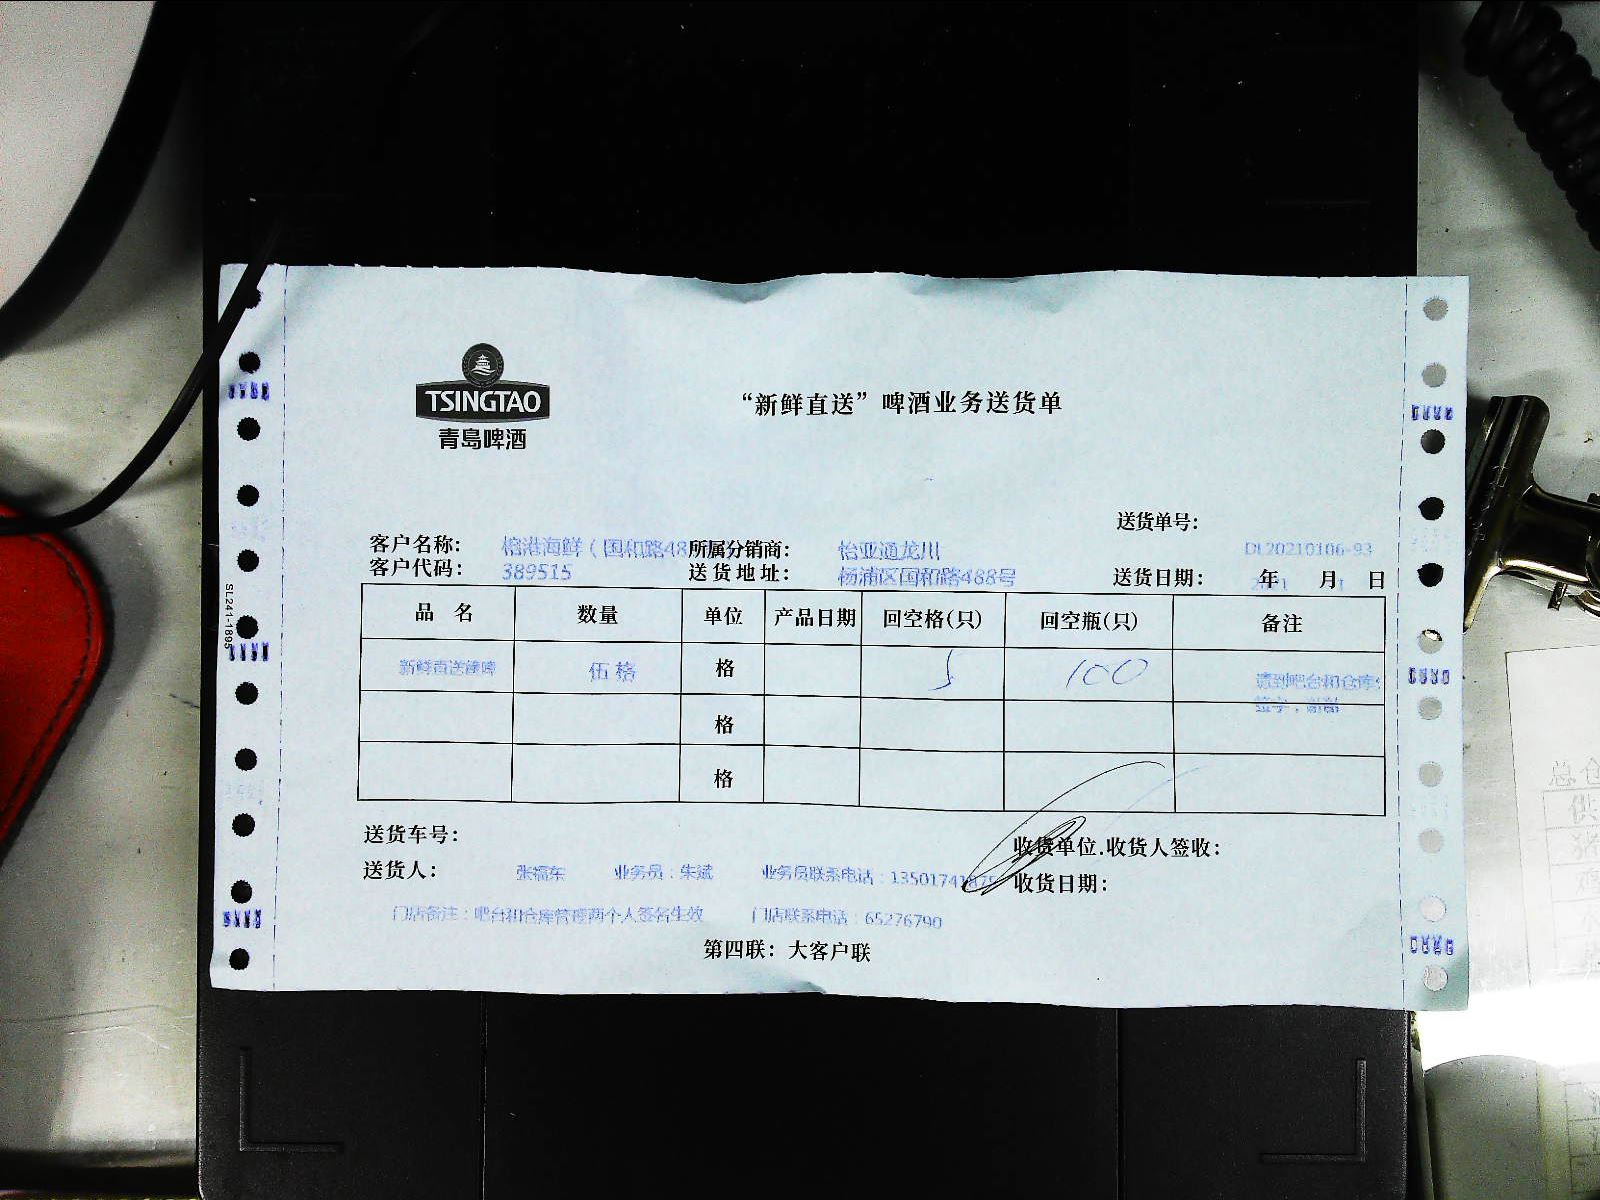 TSINGTAO
青岛啤酒
“新鲜直送”啤酒业务送货单
送货单号:
DL20210106-93
客户名称: 榕港海鲜(国和路48 所属分销商: 怡亚通龙川
客户代码: 389515 送货地址: 杨浦区国和路468号 送货日期: 年 月 日
品 名 数量 单位 产品日期 回空格(只) 回空瓶(只) 备注
新鲜直送 伍格 格 5 100 请到吧台和仓库
签字,谢谢
格
格
送货车号:
收货单位.收货人签收:
送货人: 张福东 业务员:朱斌 业务员联系电话:13501741875
收货日期:
门店备注:吧台和仓库管理两个人签名生效 门店联系电话:65276790
第四联:大客户联
SL241-1895